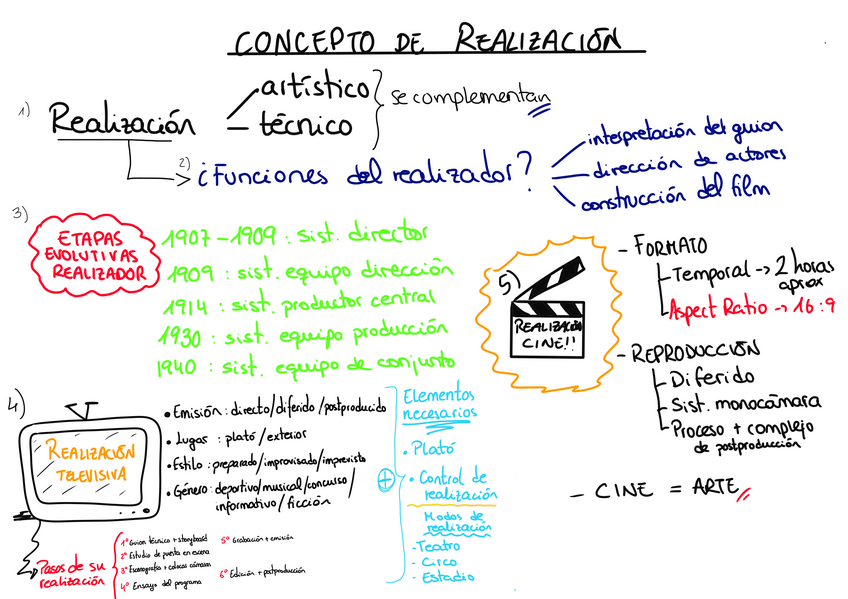 CONCEPTO DE REALIZACIÓN
1) Realización
artístico
técnico
se complementan
2) ¿Funciones del realizador?
interpretación del guion
dirección de actores
construcción del film
3)
ETAPAS
EVOLUTIVAS
REALIZADOR
1907-1909 : sist. director
1909 : sist. equipo dirección
1914 : sist. productor central
1930 : sist. equipo producción
1940 : sist. equipo de conjunto
4)
REALIZACIÓN
TELEVISIVA
• Emisión: directo/diferido/postproducido
• Lugar : plató/exterior
• Estilo: preparado/improvisado/imprevisto
• Género: deportivo/musical/concurso/
informativo/ficción
Pasos de su
realización
1º Guion técnico + storyboard
2º Estudio de puesta en escena
3º Escenografía + colocar cámaras
4º Ensayo del programa
5º Grabación + emisión
6º Edición + postproducción
+
Elementos
necesarios
• Plató
• Control de
realización
Modos de
realización
- Teatro
- Circo
- Estadio
5)
REALIZACIÓN
CINE!!
- FORMATO
Temporal -> 2 horas
aprox
Aspect Ratio -> 16:9
- REPRODUCCIÓN
Diferido
Sist. monocámara
Proceso + complejo
de postproducción
- CINE = ARTE